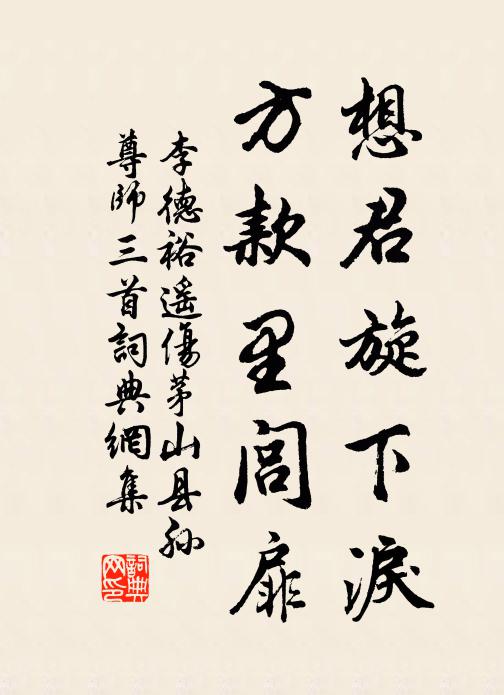 想君旋下淚
方款里閭扉
李德裕遥傷茅山县孙
尊師三首詞典網集
詞典網印